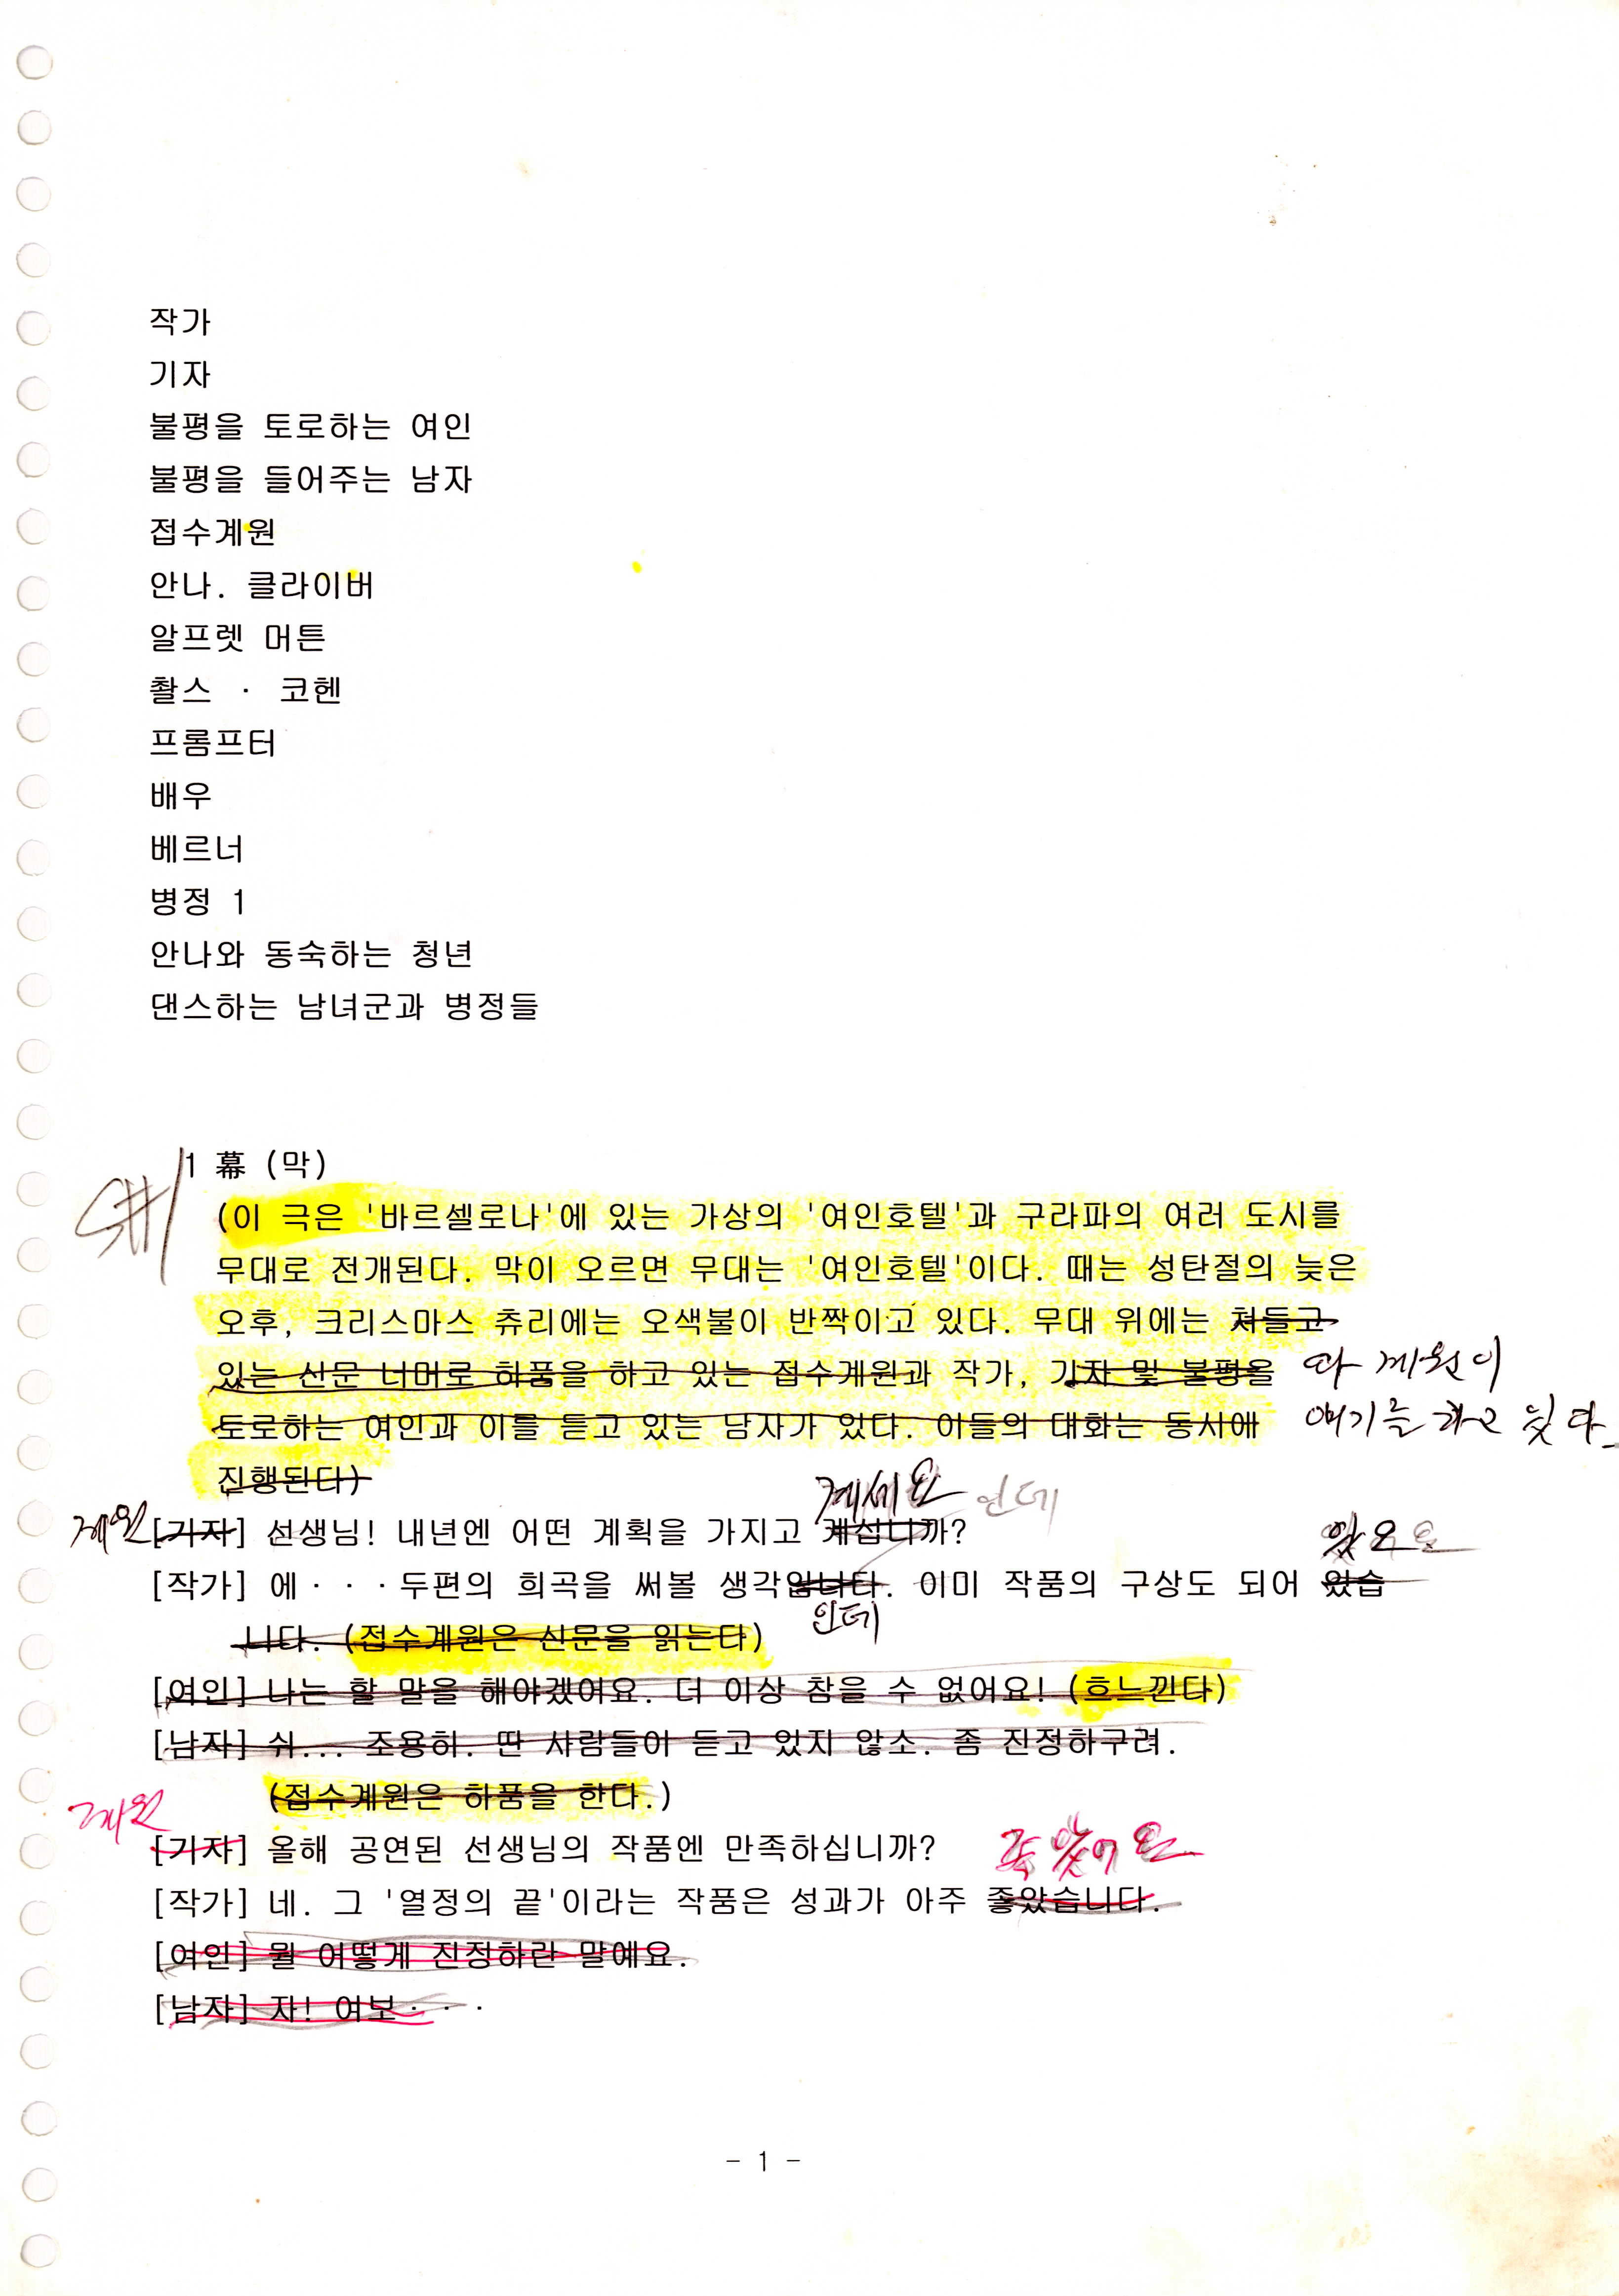 작가
기자
불평을 토로하는 여인
불평을 들어주는 남자
접수계원
안나. 클라이버
알프렛 머튼
촬스 · 코헨
프롬프터
배우
베르너
병정 1
안나와 동숙하는 청년
댄스하는 남녀군과 병정들
1 幕 (막)
(이 극은 '바르셀로나'에 있는 가상의 '여인호텔'과 구라파의 여러 도시를
무대로 전개된다. 막이 오르면 무대는 '여인호텔'이다. 때는 성탄절의 늦은
오후, 크리스마스 츄리에는 오색불이 반짝이고 있다. 무대 위에는 쳐들고
있는 신문 너머로 하품을 하고 있는 접수계원과 작가, 기자 및 불평을
계원이
토로하는 여인과 이를 듣고 있는 남자가 있다. 이들의 대화는 동시에
얘기를 하고 있다
진행된다)
계세요 인데
계원 [기자] 선생님! 내년엔 어떤 계획을 가지고 계십니까?
있오요
[작가] 에· · ·두편의 희곡을 써볼 생각입니다. 이미 작품의 구상도 되어 있습
인데
니다. (접수계원은 신문을 읽는다)
[여인] 나는 할 말을 해야겠어요. 더 이상 참을 수 없어요! (흐느낀다)
[남자] 쉬... 조용히. 딴 사람들이 듣고 있지 않소. 좀 진정하구려.
(접수계원은 하품을 한다.)
계원
[기자] 올해 공연된 선생님의 작품엔 만족하십니까?
[작가] 네. 그 '열정의 끝'이라는 작품은 성과가 아주 좋았습니다.
[여인] 뭘 어떻게 진정하란 말예요.
[남자] 자! 여보· · ·
- 1 -